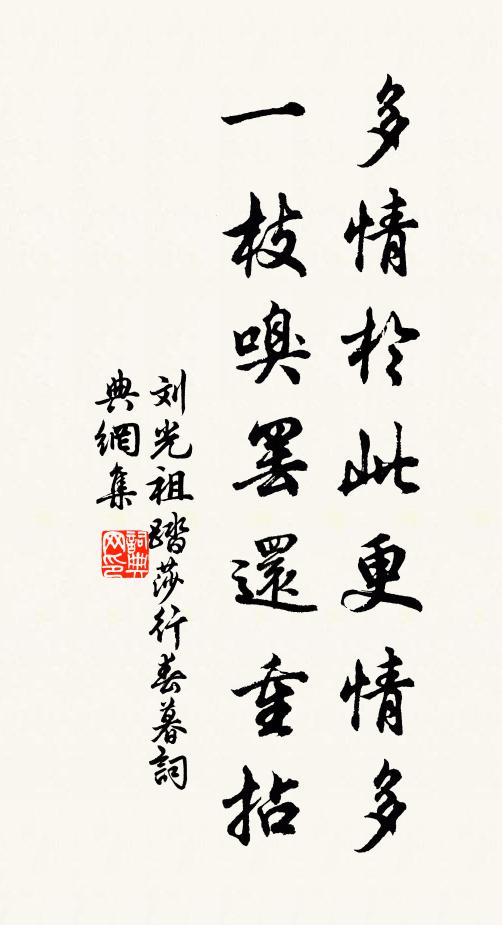 多情於此更情多
一枝嗅罷還重拈
刘光祖踏莎行春暮詞
典網集
詞典网印